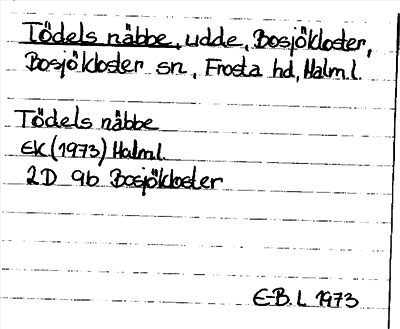 Tödels näbbe, udde, Bosjökloster,
Bosjökloster sn, Frosta hd, Malm.l.
Tödels näbbe
EK (1973) Malm.l.
2D 9b Bosjökloster
E-B. L 1973